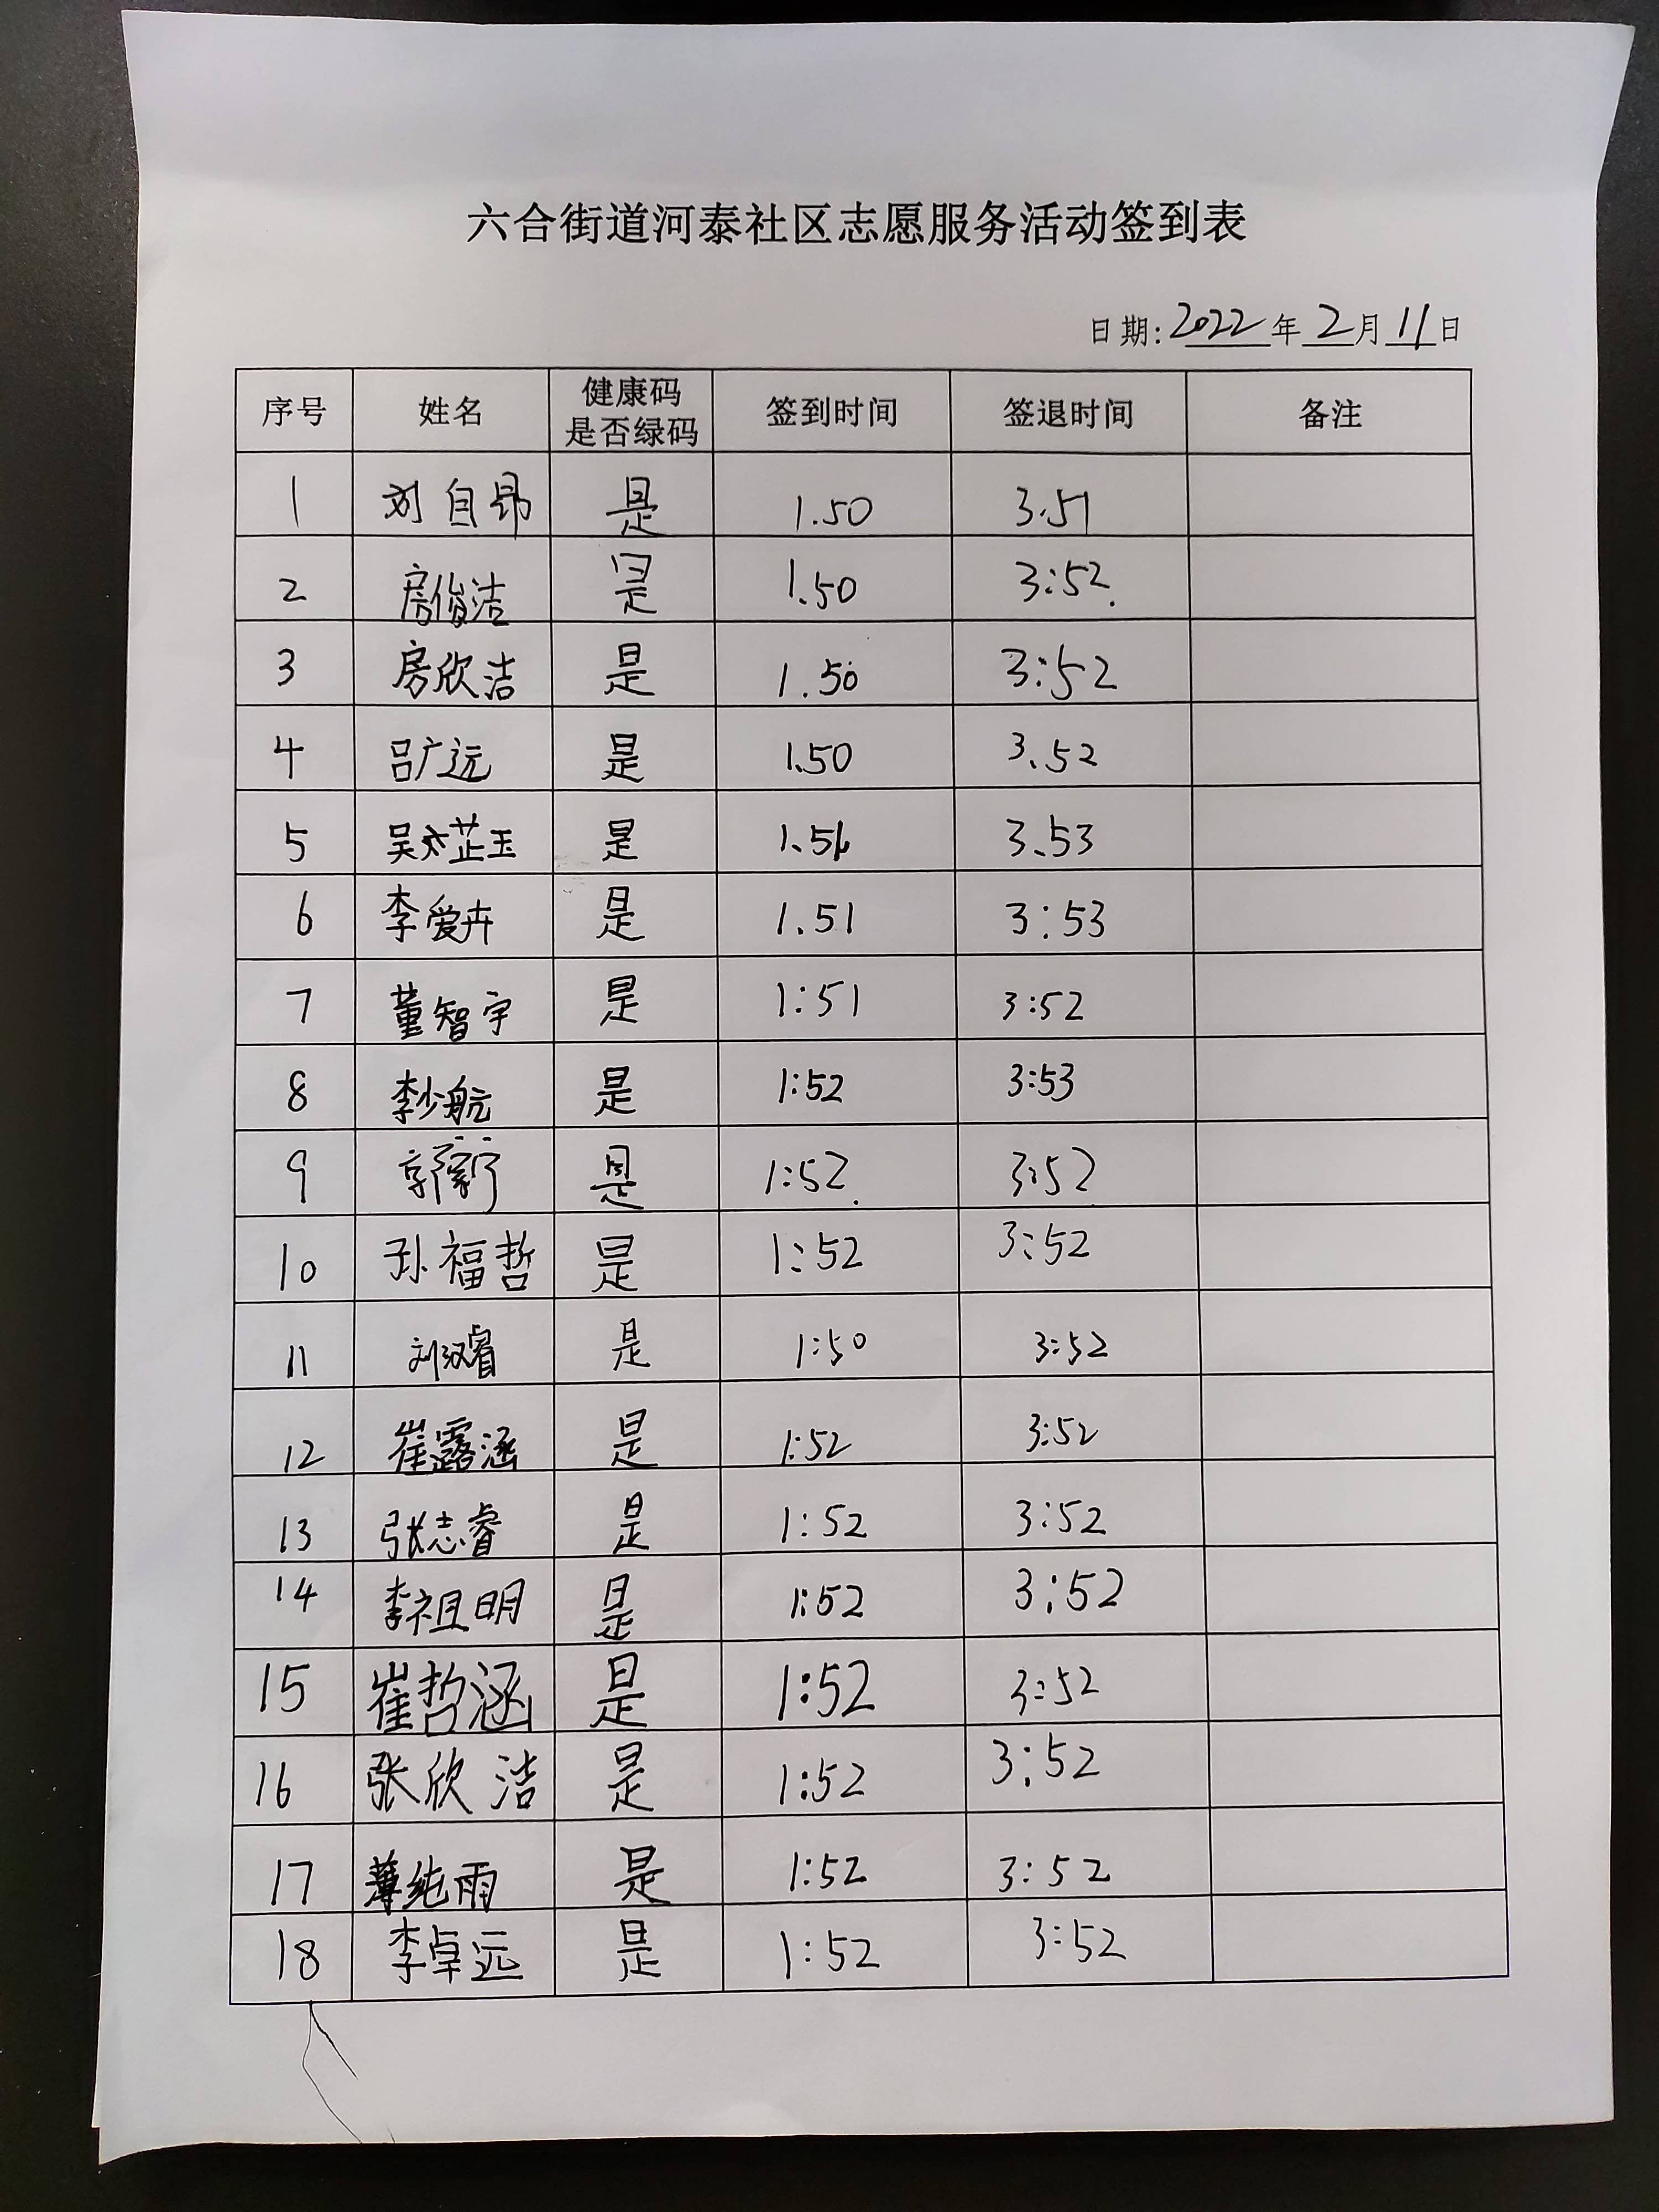 六合街道河泰社区志愿服务活动签到表
日期:2022年2月11日
序号 姓名 健康码是否绿码 签到时间 签退时间 备注
1 刘自昂 是 1.50 3.51
2 房俊洁 是 1.50 3:52.
3 房欣洁 是 1.50 3:52
4 吕广远 是 1.50 3.52
5 吴芷玉 是 1.51 3.53
6 李爱卉 是 1.51 3:53
7 董智宇 是 1:51 3:52
8 李少航 是 1:52 3:53
9 郭 是 1:52. 3:52
10 孙福哲 是 1:52 3:52
11 刘汉睿 是 1:50 3:52
12 崔露涵 是 1:52 3:52
13 张志睿 是 1:52 3:52
14 李祖明 是 1:52 3:52
15 崔哲涵 是 1:52 3:52
16 张欣洁 是 1:52 3:52
17 薄纯雨 是 1:52 3:52
18 李卓远 是 1:52 3:52